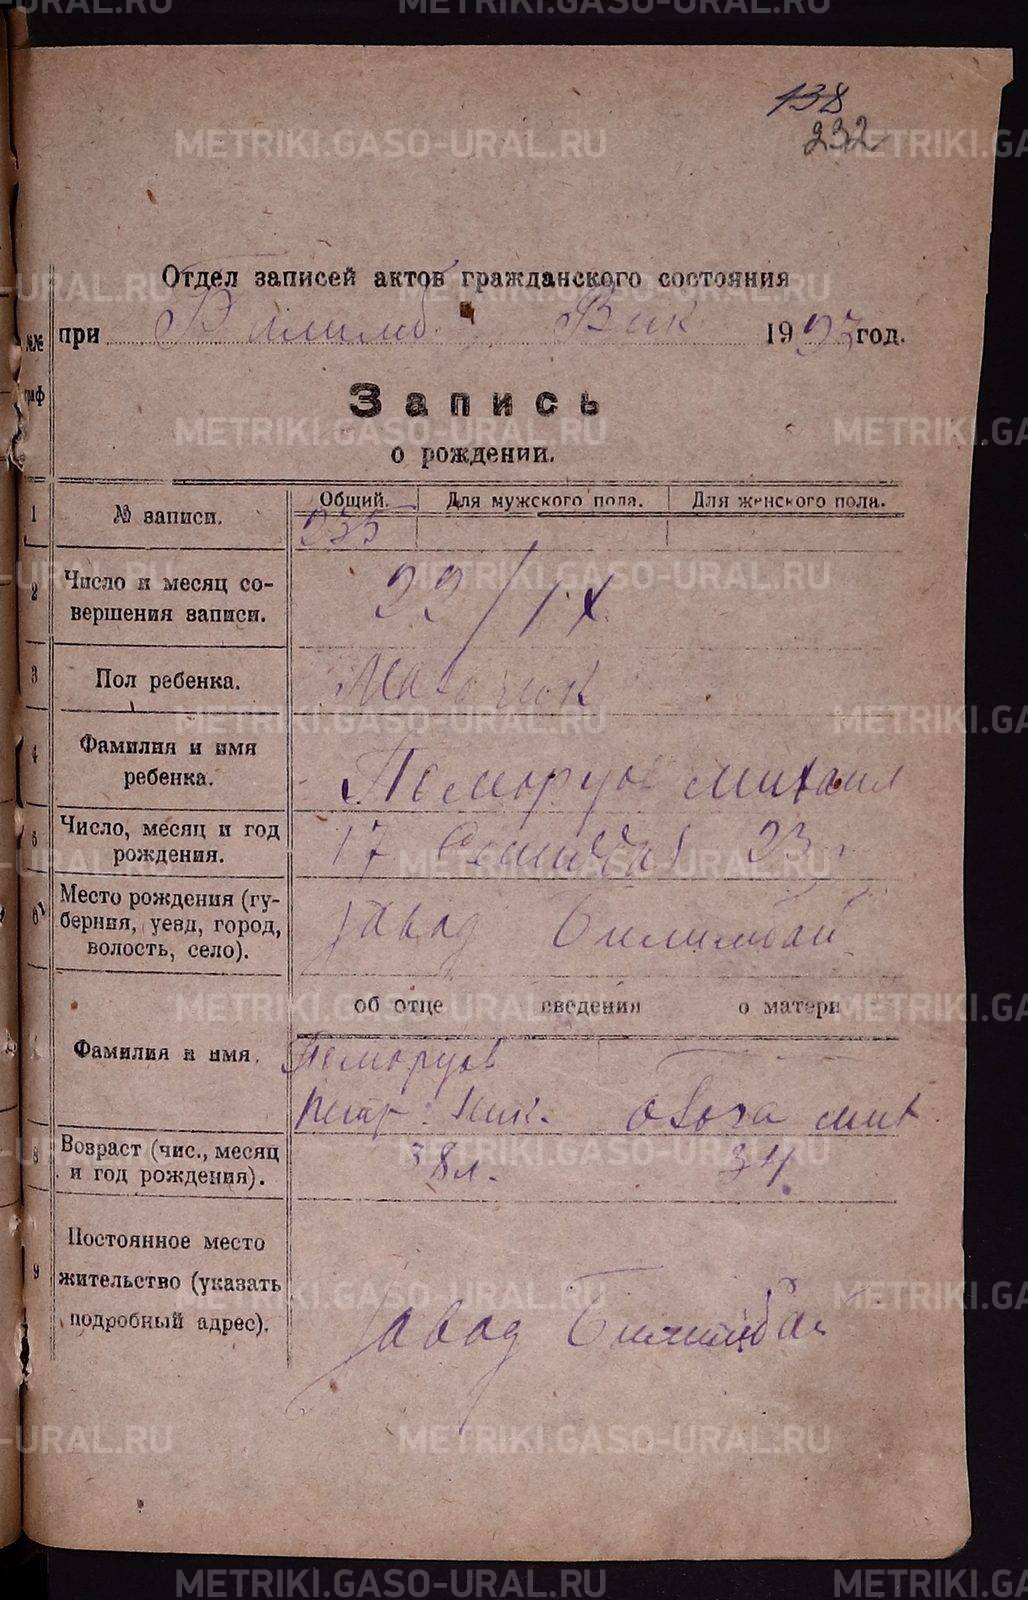 138
232
Отдел записей актов гражданского состояния
при Билимб. Вик 1923 год.
№№
граф
Запись
о рождении.
1 № записи. Общий. Для мужского пола. Для женского пола.
235
2 Число и месяц со-
вершения записи. 22/IX
3 Пол ребенка. Мальчик
4 Фамилия и имя
ребенка. Михаил
5 Число, месяц и год
рождения. 17 Сентября 23 г
6 Место рождения (гу-
берния, уезд, город,
волость, село). завод Билимбай
об отце сведения о матери
Фамилия и имя.
Петр Ник.
8 Возраст (чис., месяц
и год рождения). 38 л. 34
9 Постоянное место
жительство (указать
подробный адрес). завод Билимбай
METRIKI.GASO-URAL.RU